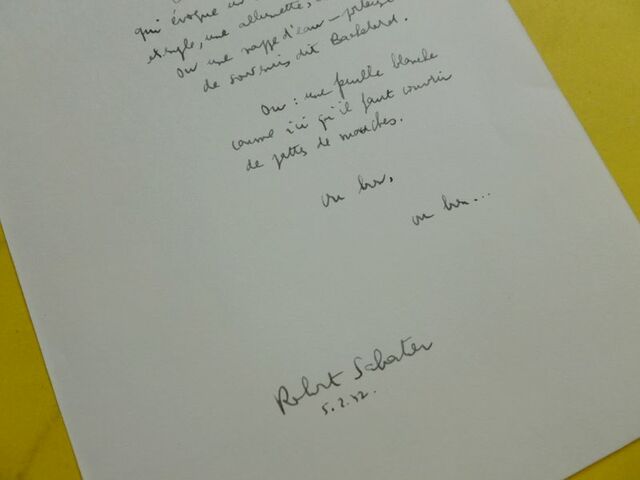 qui évoque un
exemple, une allumette,
Ou une nappe d'eau – porteuse
de souvenirs dit Bachelard.
Ou : une feuille blanche
comme ici qu'il faut couvrir
de pattes de mouches.
ou bien,
ou bien...
Robert Sabatier
5.2.92.